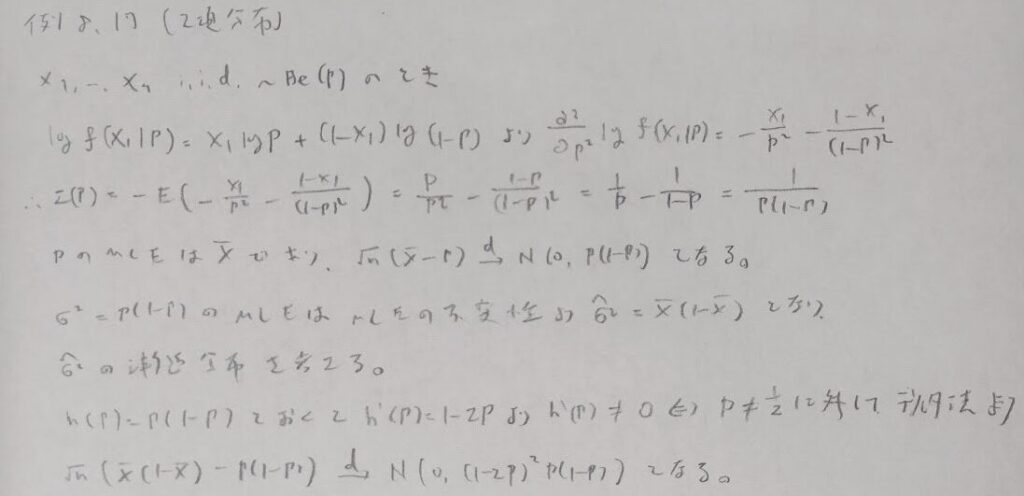 例 8.17 (2項分布)
X₁, …, Xₙ i.i.d. ~ Be(p) のとき
log f(X₁|p) = X₁ log p + (1-X₁) log (1-p) より ∂²/∂p² log f(X₁|p) = - X₁/p² - (1-X₁)/(1-p)²
∴ I(p) = - E(- X₁/p² - (1-X₁)/(1-p)²) = p/p² - (1-p)/(1-p)² = 1/p - 1/(1-p) = 1/(p(1-p))
p の MLE は X̄ であり、 √n (X̄ - p) →d N(0, p(1-p)) となる。
σ² = p(1-p) の MLE は MLE の不変性より σ̂² = X̄(1-X̄) となり、
σ̂² の漸近分布を考える。
h(p) = p(1-p) とおくと h'(p) = 1-2p より h'(p) ≠ 0 ⇔ p ≠ 1/2 に対して デルタ法より
√n (X̄(1-X̄) - p(1-p)) →d N(0, (1-2p)² p(1-p)) となる。